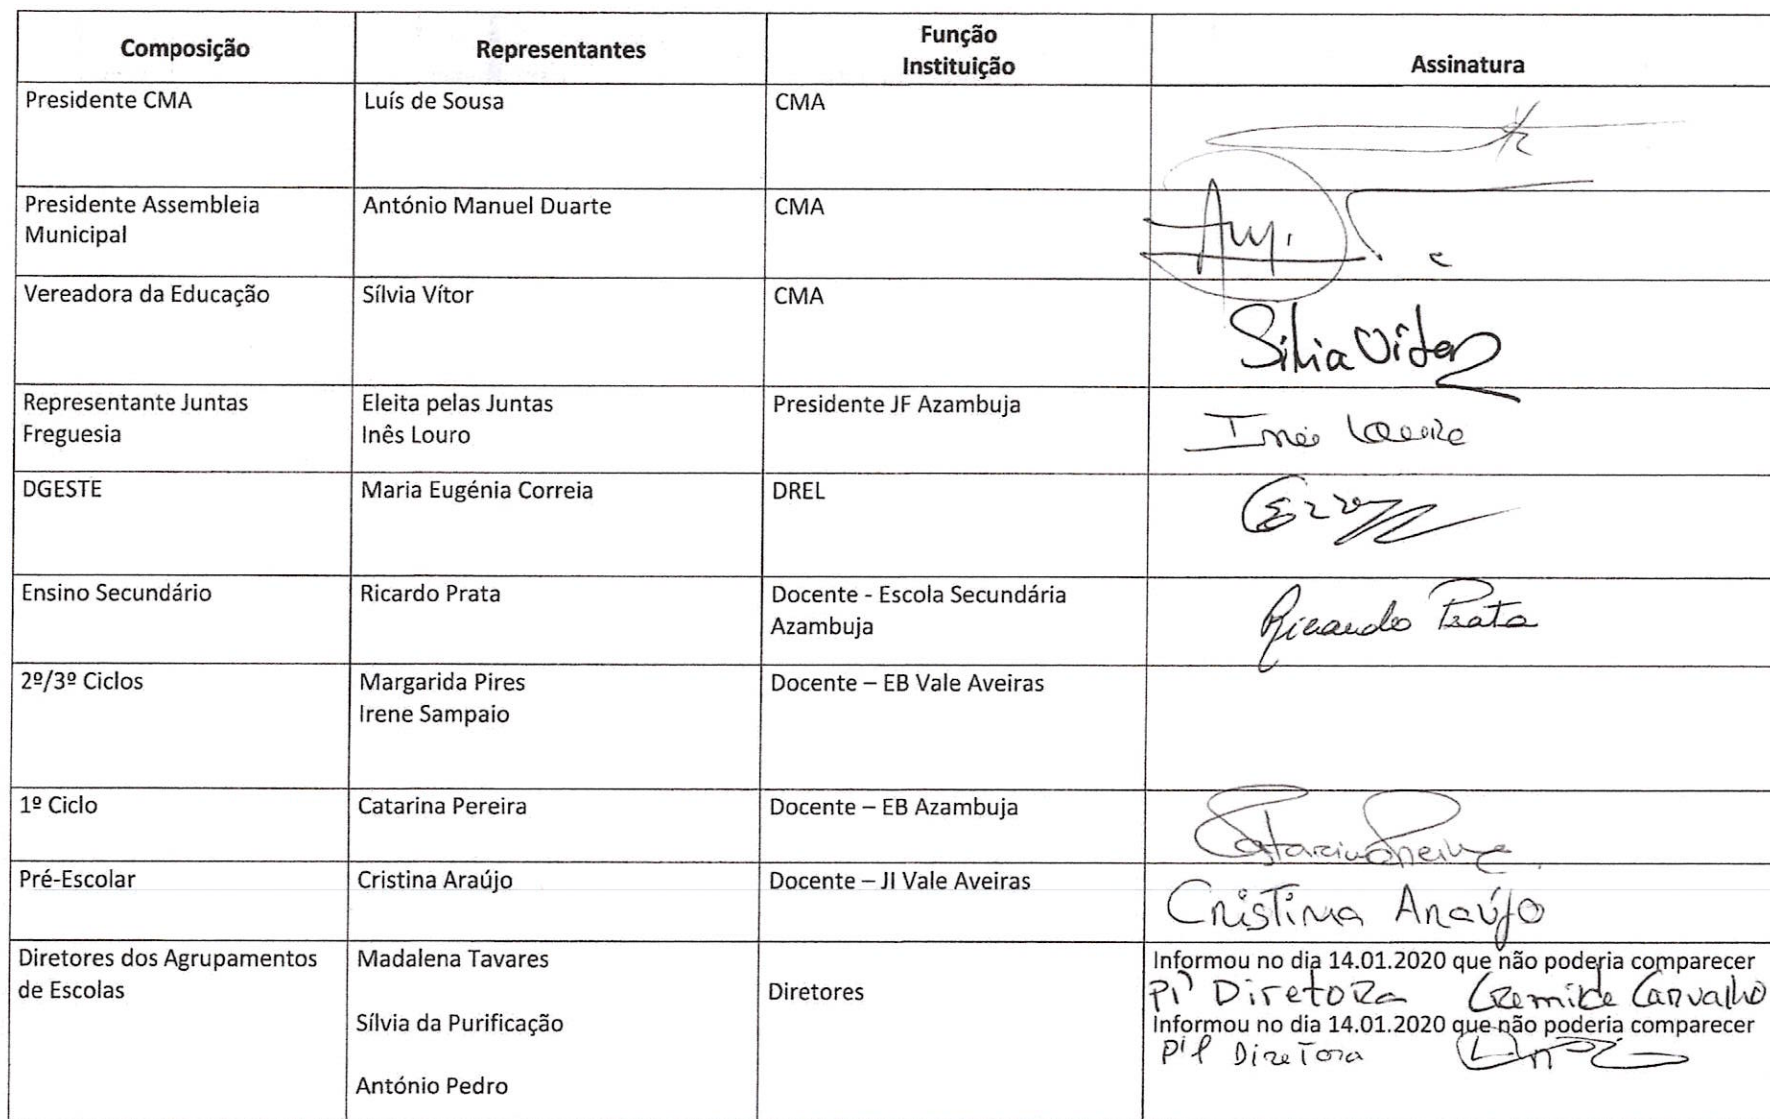 Composição Representantes Função Instituição Assinatura
Presidente CMA Luís de Sousa CMA
Presidente Assembleia Municipal António Manuel Duarte CMA
Vereadora da Educação Sílvia Vítor CMA Sílvia Vítor
Representante Juntas Freguesia Eleita pelas Juntas Inês Louro Presidente JF Azambuja Inês Louro
DGESTE Maria Eugénia Correia DREL
Ensino Secundário Ricardo Prata Docente - Escola Secundária Azambuja Ricardo Prata
2º/3º Ciclos Margarida Pires Irene Sampaio Docente – EB Vale Aveiras
1º Ciclo Catarina Pereira Docente – EB Azambuja Catarina Pereira
Pré-Escolar Cristina Araújo Docente – JI Vale Aveiras Cristina Araújo
Diretores dos Agrupamentos de Escolas Madalena Tavares Diretores Informou no dia 14.01.2020 que não poderia comparecer
Diretora Carvalho
Sílvia da Purificação Informou no dia 14.01.2020 que não poderia comparecer
Diretora
António Pedro